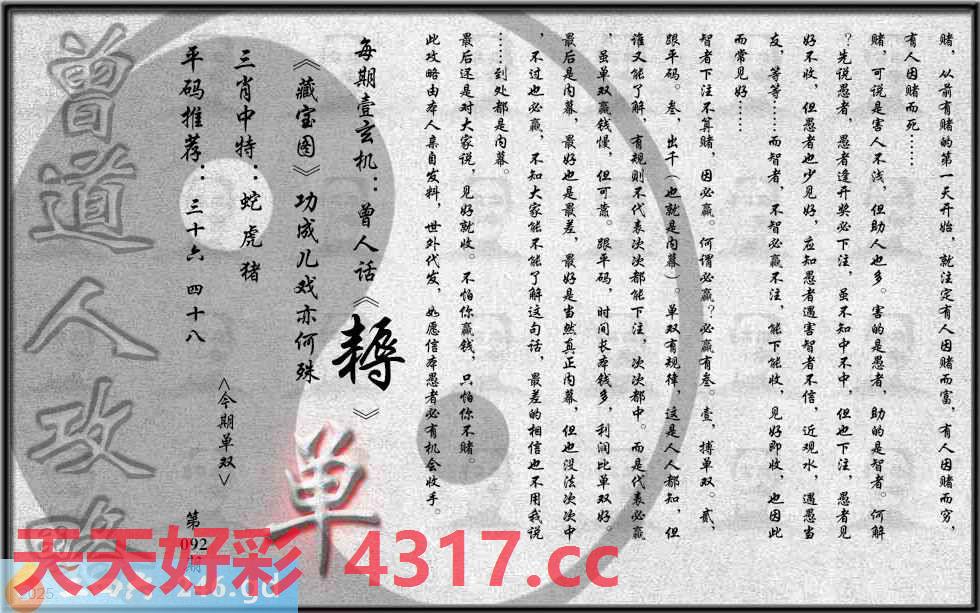 赌，从前有赌的第一天开始，就注定有人因赌而富，有人因赌而穷，
有人因赌而死……
赌，可说是害人不浅，但助人也多。害的是愚者，助的是智者。何解
？先说愚者，愚者逢开奖必下注，虽不知中不中，但也下注，愚者见
好不收，但愚者也少见好，应知愚者遇害智者不信，近观水，遇愚当
友，等等……而智者，不智必赢不注，能下能收，见好即收，也因此
而常见好……
智者下注不算赌，因必赢。何谓必赢？必赢有叁。壹，搏单双。贰，
跟平码。叁，出千（也就是内幕）。单双有规律，这是人人都知，但
谁又能了解，有规则不代表次次都能下注，次次都中。而是代表必赢
，虽单双赢钱慢，但可靠。跟平码，时间长本钱多，利润比单双好。
最后是内幕，最好也是最差，最好是当然真正内幕，但也没法次次中
，不过也必赢，不知大家能不能了解这句话，最差的相信也不用我说
……到处都是内幕。
最后还是对大家说，见好就收。不怕你赢钱，只怕你不赌。
此攻略由本人亲自发料，世外代发，如愿信本愚者必有机会收手。
每期壹玄机：曾人话《耨》
《藏宝图》功成儿戏亦何殊
三肖中特：蛇虎猪
平码推荐：三十六 四十八
<今期单双>
单
第
092
期
曾道人攻略
天天好彩 4317.cc
2025
246.gd